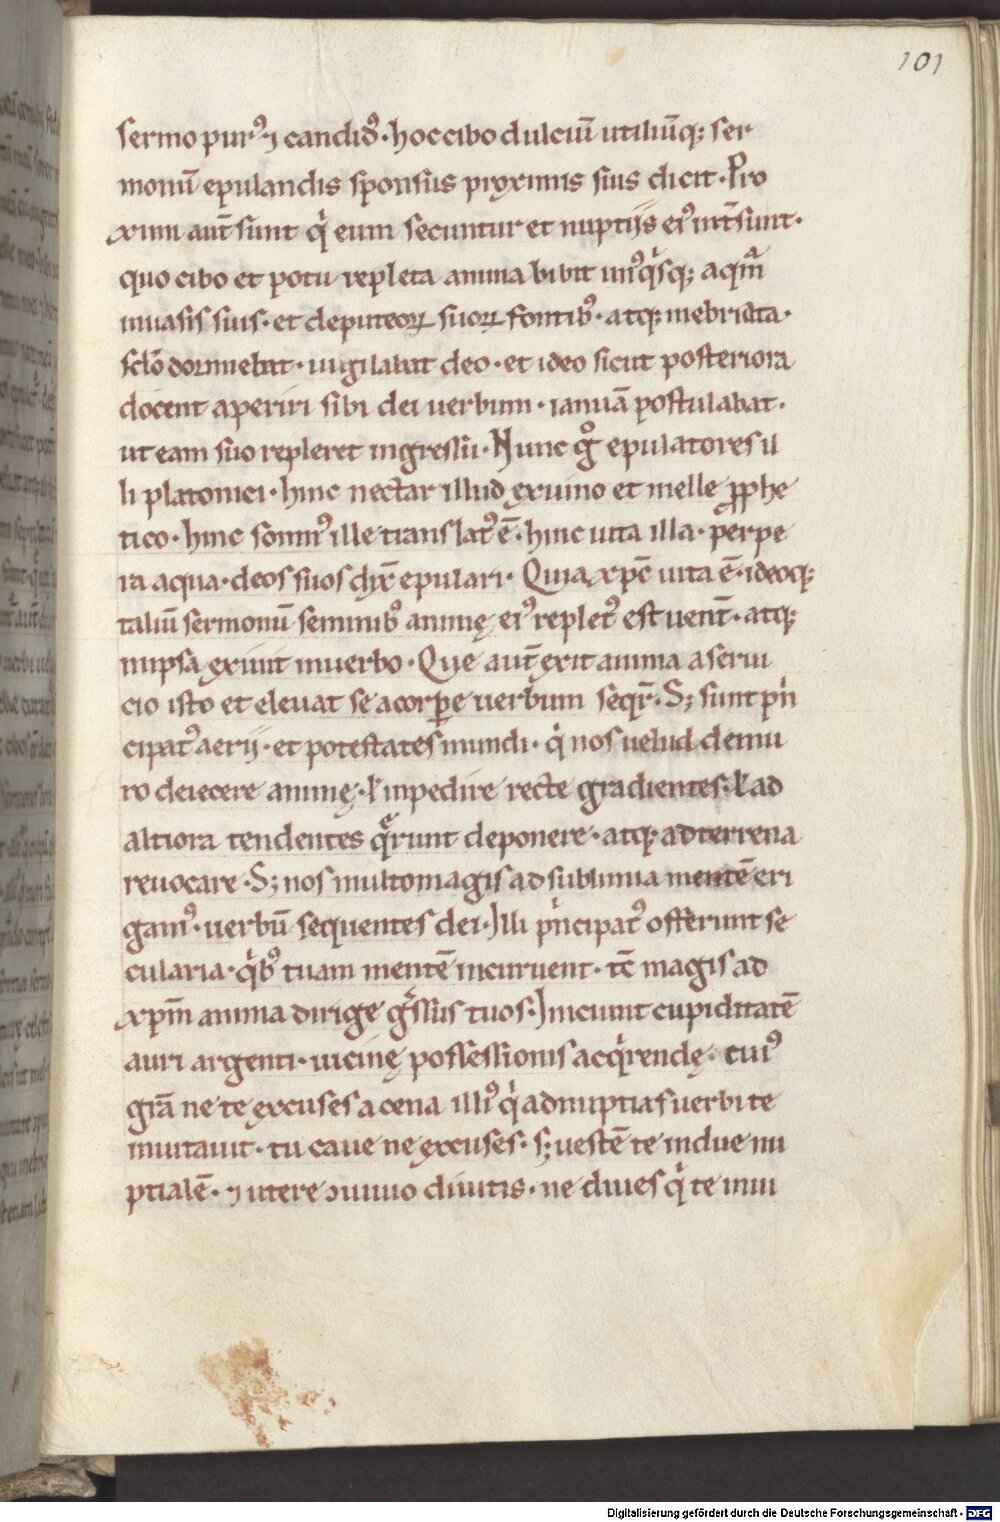 101
sermo purꝰ ⁊ candidꝰ · hoc cibo dulciū utiliūq; ser
monū epulandis sponsus proximis suis dicit · Pro
ximi aut̄ sunt qͥ eum secuntur et nuptiis eiꝰ int̄sunt ·
quo cibo et potu repleta anima bibit unꝰqͥsq; aqͣm̄
inuasis suis · et deputeoꝝ suoꝝ fontibꝰ · atq; inebriata ·
sclō dormiebat · uigilabat deo · et ideo sicut posteriora
docent aperiri sibi dei uerbum · ianuā postulabat ·
ut eam suo repleret ingressu · Nunc gͦ epulatores il
li platonici · hinc nectar illud ex uino et melle ꝓphe
tico · hinc somnꝰ ille translatꝰ ē · hinc uita illa · perpe
ra aqua · deos suos dixr̄ epulari · Quia xp̄c uita ē · ideoq;
taliū sermonū seminibꝰ animę eiꝰ repletꝰ est uent̄ · atq;
inipsa exiuit inuerbo · Que aut̄ exit anima a serui
cio isto et eleuat se acorꝑe uerbum seqͥr̄ · S; sunt pͥn
cipatꝰ aerii · et potestates mundi · qͥ nos uelud demu
ro deiecere animę · ł inpedire recte gradientes · ł ad
altiora tendentes qͣerunt deponere · atq; adterrena
reuocare · S; nos multomagis ad sublimia mentē eri
gamꝰ · uerbū sequentes dei · Illi pͥncipatꝰ offerunt se
cularia · qͥbꝰ tuam mentē incuruent · tc̄ magis ad
xp̄m anima dirige gͣssus tuos · Inicuunt cupiditatē
auri argenti · uicinę possessionis acqͥrendę · cuiꝰ
grā̄ ne te excuses a cena illiꝰ qͥ adnuptias uerbi te
inuitauit · tu caue ne excuses · s; uestē te indue nu
ptialē · ⁊ utere ɔuiuio diuitis · ne diues qͥ te inui
Digitalisierung gefördert durch die Deutsche Forschungsgemeinschaft - DFG